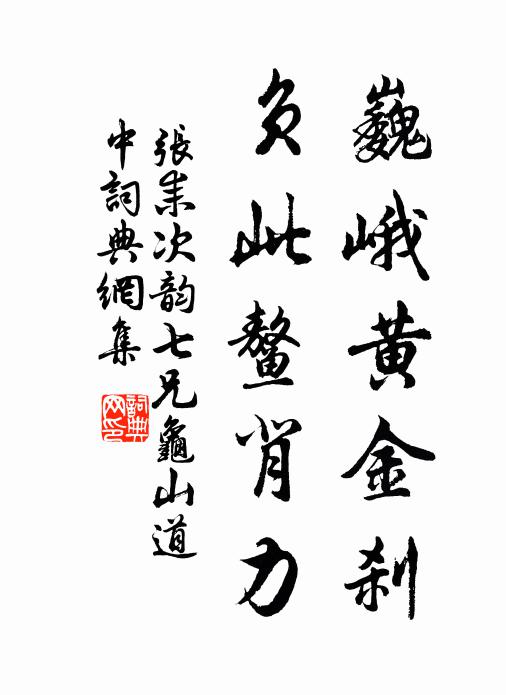 巍峨黄金刹
負此鰲背力
張耒次韵七兄龜山道
中詞典網集
詞典
网印